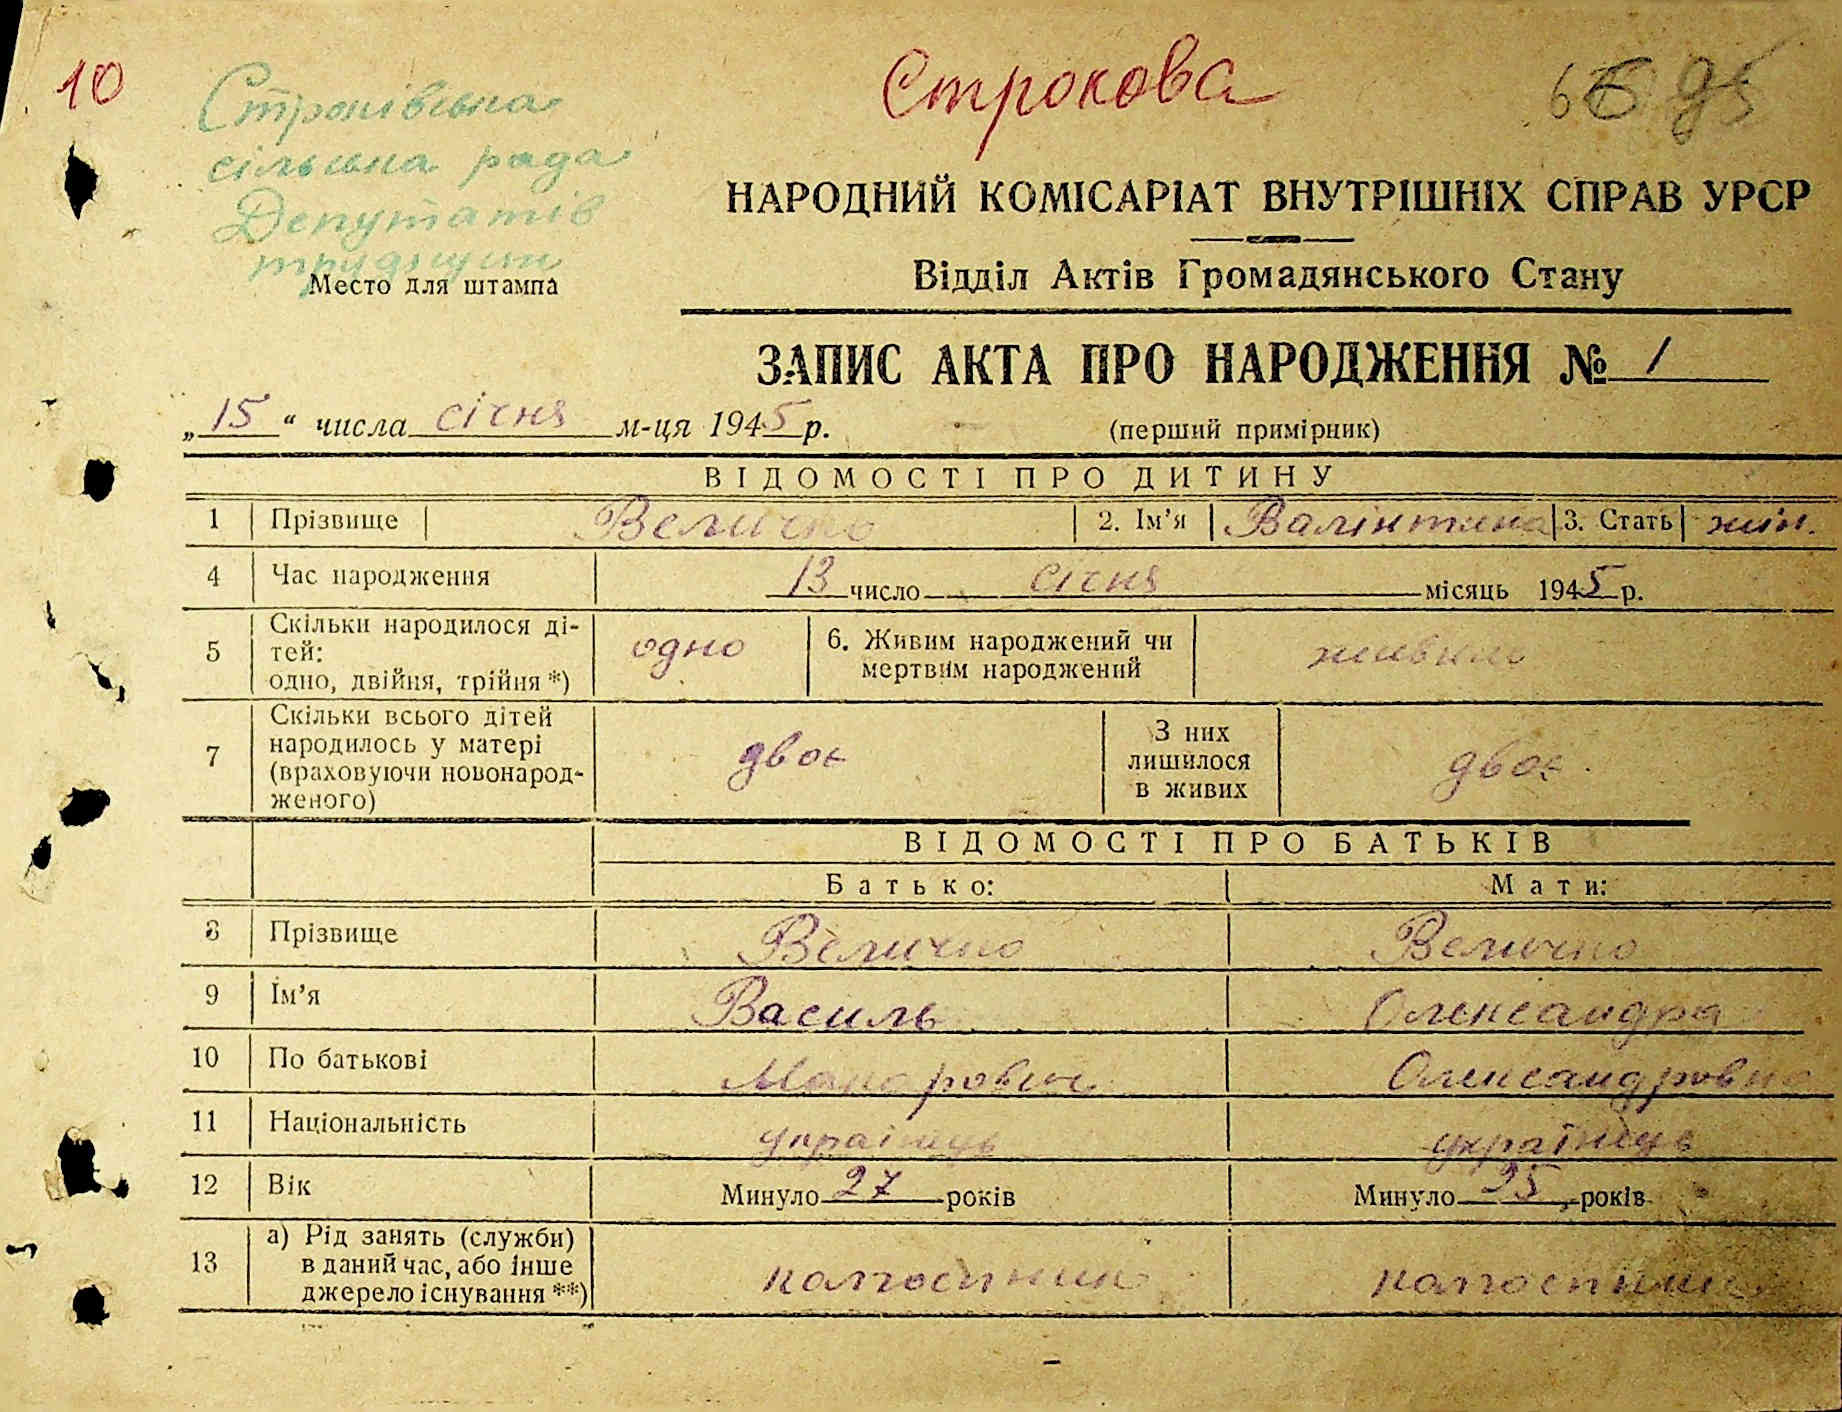 10
Строкова
Строківська
сільська рада
Депутатів
трудящих
Место для штампа
НАРОДНИЙ КОМІСАРІАТ ВНУТРІШНІХ СПРАВ УРСР
Відділ Актів Громадянського Стану
ЗАПИС АКТА ПРО НАРОДЖЕННЯ № 1
„15“ числа січня м-ця 1945 р. (перший примірник)
ВІДОМОСТІ ПРО ДИТИНУ
1 Прізвище Величко 2. Ім’я Валінтина 3. Стать жін.
4 Час народження 13 число січня місяць 1945 р.
5 Скільки народилося ді-
тей:
одно, двійня, трійня *) одно 6. Живим народжений чи
мертвим народжений живим
7 Скільки всього дітей
народилось у матері
(враховуючи новонарод-
женого) двоє З них
лишилося
в живих двоє.
ВІДОМОСТІ ПРО БАТЬКІВ
Батько: Мати:
8 Прізвище Величко Величко
9 Ім’я Василь Олександра
10 По батькові Макарович Олександровна
11 Національність українець українець
12 Вік Минуло 27 років Минуло 25 років
13 а) Рід занять (служби)
в даний час, або інше
джерело існування **) колгоспник колгоспниця